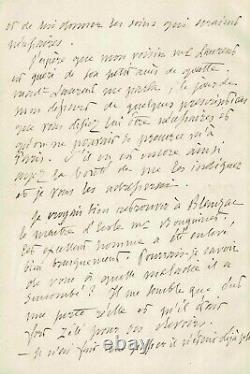 et de lui donner les soins qui seraient
nécessaires.
J'espère que mon voisin Mr Laurent
est guéri de son petit accès de goutte.
Mme Laurent me parla, le jour de
mon départ de quelques prescriptions
que vous disiez lui être nécessaires et
qu'on ne pouvait se procurer qu'à
Paris. S'il en est encore ainsi
ayez la bonté de me les indiquer
et je vous les adresserai.
Je croyais bien retrouver à Blenzac
le maître d'école Mr
Cet excellent homme a été enlevé
bien brusquement. Pourrais-je savoir
de vous à quelle maladie il a
succombé? Il me semble que c'est
une perte réelle et qu'il était
fort zélé pour ses devoirs.
— Je n'ai fait que passer il